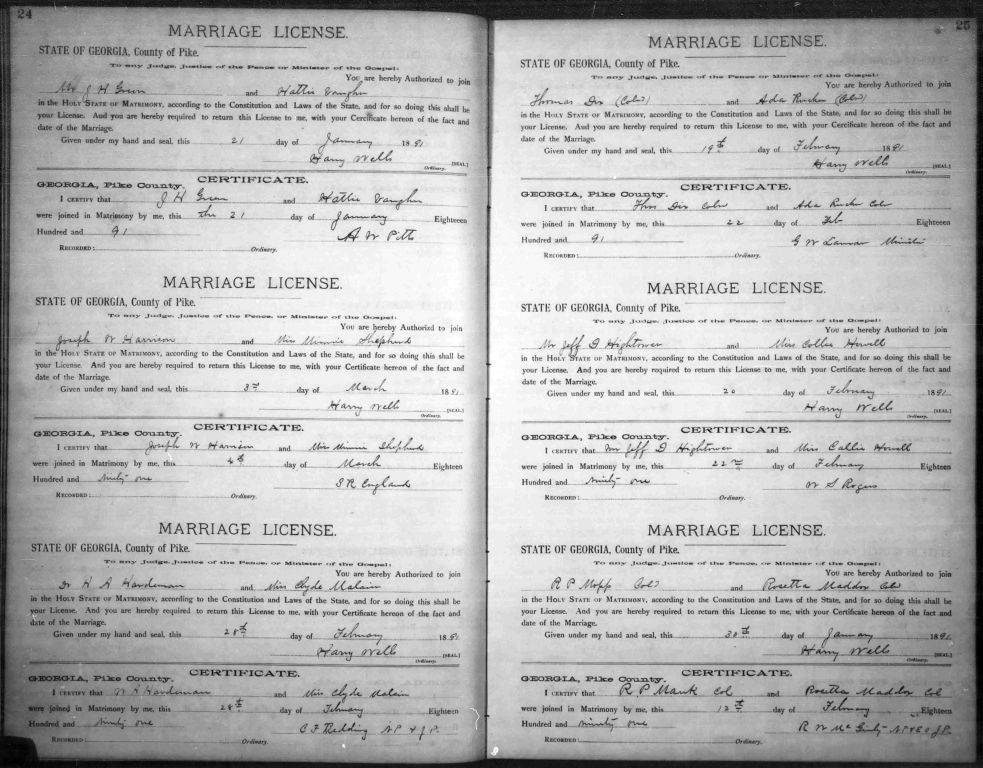 24
MARRIAGE LICENSE.
STATE OF GEORGIA, County of Pike.
To any Judge, Justice of the Peace or Minister of the Gospel:
You are hereby Authorized to join
Mr J H Green and Hattie Vaughn
in the HOLY STATE OF MATRIMONY, according to the Constitution and Laws of the State, and for so doing this shall be
your License. And you are hereby required to return this License to me, with your Certificate hereon of the fact and
date of the Marriage.
Given under my hand and seal, this 21 day of January 1891
Harry Wells [SEAL.]
Ordinary.
CERTIFICATE.
GEORGIA, Pike County.
I CERTIFY that J H Green and Hattie Vaughn
were joined in Matrimony by me, this the 21 day of January Eighteen
Hundred and 91 A W Pitts
RECORDED: Ordinary.
MARRIAGE LICENSE.
STATE OF GEORGIA, County of Pike.
To any Judge, Justice of the Peace, or Minister of the Gospel:
You are hereby Authorized to join
Joseph W Harrison and Miss Minnie Shepherd
in the HOLY STATE OF MATRIMONY, according to the Constitution and Laws of the State, and for so doing this shall be
your License. And you are hereby required to return this License to me, with your Certificate hereon of the fact and
date of the Marriage.
Given under my hand and seal, this 3rd day of March 1891
Harry Wells [SEAL]
Ordinary.
CERTIFICATE.
GEORGIA, Pike County.
I CERTIFY that Joseph W Harrison and Miss Minnie Shepherd
were joined in Matrimony by me, this 4th day of March Eighteen
Hundred and ninety one S R England
RECORDED: Ordinary.
MARRIAGE LICENSE.
STATE OF GEORGIA, County of Pike.
To any Judge, Justice of the Peace, or Minister of the Gospel:
You are hereby Authorized to join
Dr H A Hardeman and Miss Clyde Malain
in the HOLY STATE OF MATRIMONY, according to the Constitution and Laws of the State, and for so doing this shall be
your License. And you are hereby required to return this License to me, with your Certificate hereon of the fact and
date of the Marriage.
Given under my hand and seal, this 28th day of February 1891
Harry Wells [SEAL]
Ordinary.
CERTIFICATE.
GEORGIA, Pike County.
I CERTIFY that Hardeman and Miss Clyde Malain
were joined in Matrimony by me, this 28th day of February Eighteen
Hundred and ninety one C F Redding NP & J P.
RECORDED: Ordinary.
25
MARRIAGE LICENSE.
STATE OF GEORGIA, County of Pike.
To any Judge, Justice of the Peace, or Minister of the Gospel:
You are hereby Authorized to join
Thomas Dix (Cold) and Ada Rucker (Cold)
in the HOLY STATE OF MATRIMONY, according to the Constitution and Laws of the State, and for so doing this shall be
your License. And you are hereby required to return this License to me, with your Certificate hereon of the fact and
date of the Marriage.
Given under my hand and seal, this 19th day of February 1891
Harry Wells [SEAL]
Ordinary.
CERTIFICATE.
GEORGIA, Pike County.
I CERTIFY that Thos Dix Cold and Ada Rucker Col
were joined in Matrimony by me, this 22 day of Feb Eighteen
Hundred and 91 G W Lamar Minister
RECORDED: Ordinary.
MARRIAGE LICENSE.
STATE OF GEORGIA, County of Pike.
To any Judge, Justice of the Peace, or Minister of the Gospel:
You are hereby Authorized to join
Mr Jeff D Hightower and Miss Callie Howell
in the HOLY STATE OF MATRIMONY, according to the Constitution and Laws of the State, and for so doing this shall be
your License. And you are hereby required to return this License to me, with your Certificate hereon of the fact and
date of the Marriage.
Given under my hand and seal, this 20 day of February 1891
Harry Wells [SEAL]
Ordinary.
CERTIFICATE.
GEORGIA, Pike County.
I CERTIFY that Mr Jeff D Hightower and Miss Callie Howell
were joined in Matrimony by me, this 22nd day of February Eighteen
Hundred and ninety one W S Rogers
RECORDED: Ordinary.
MARRIAGE LICENSE.
STATE OF GEORGIA, County of Pike.
To any Judge, Justice of the Peace, or Minister of the Gospel:
You are hereby Authorized to join
R P Col and Rosetta Maddox Cold
in the HOLY STATE OF MATRIMONY, according to the Constitution and Laws of the State, and for so doing this shall be
your License. And you are hereby required to return this License to me, with your Certificate hereon of the fact and
date of the Marriage.
Given under my hand and seal, this 30th day of January 1891
Harry Wells [SEAL]
Ordinary.
CERTIFICATE.
GEORGIA, Pike County.
I CERTIFY that R P Col and Rosetta Maddox Col
were joined in Matrimony by me, this 12th day of February Eighteen
Hundred and ninety one R W McGinty NP & E O J.P.
RECORDED: Ordinary.